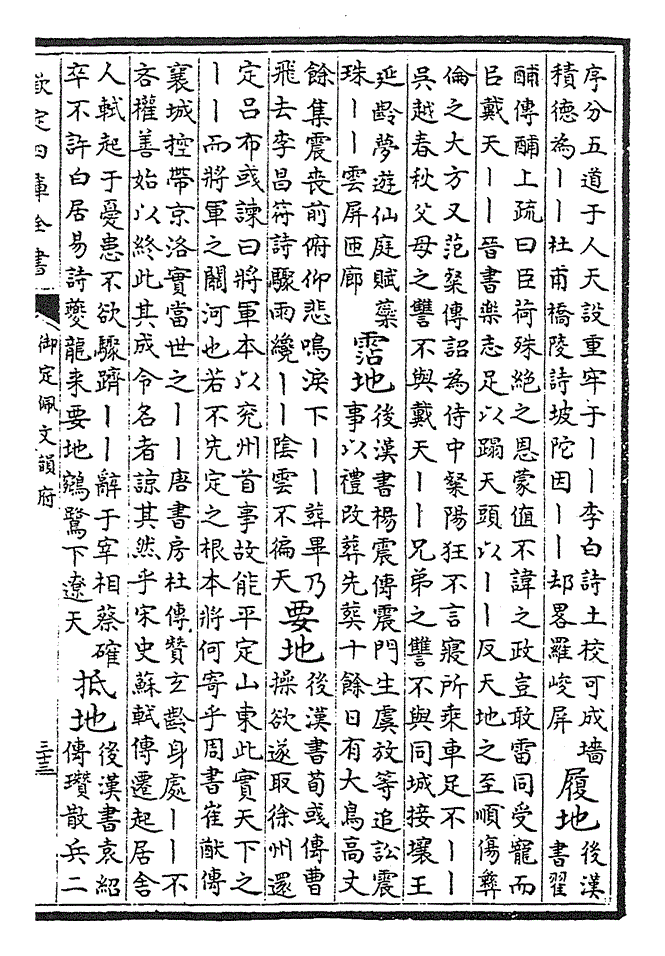 序分五道于人天設重牢于丨丨李白詩土校可成墻
積德為丨丨杜甫橋陵詩坡陀因丨丨却畧羅峻屏
履地
後漢
書翟
酺傳酺上疏曰臣荷殊絕之恩蒙值不諱之政豈敢雷同受寵而
㠯戴天丨丨晉書樂志足以蹋天頭以丨丨反天地之至順傷彝
倫之大方又范粲傳詔為侍中粲陽狂不言寢所乘車足不丨丨
吳越春秋父母之讐不與戴天丨丨兄弟之讐不與同城接壤王
延齡夢遊仙庭賦藥
珠丨丨雲屏匝廊
霑地
後漢書楊震傳震門生虞放等追訟震
事以禮改葬先葬十餘日有大鳥高丈
餘集震喪前俯仰悲鳴淚下丨丨葬畢乃
飛去李昌符詩驟雨纔丨丨陰雲不徧天
要地
後漢書荀彧傳曹
操欲遂取徐州還
定呂布彧諫曰將軍本以兖州首事故能平定山東此實天下之
丨丨而將軍之關河也若不先定之根本將何寄乎周書崔猷傳
襄城控帶京洛實當世之丨丨唐書房杜傳贊玄齡身處丨丨不
吝權善始以終此其成令名者諒其然乎宋史蘇軾傳遷起居舍
人軾起于憂患不欲驟躋丨丨辭于宰相蔡確
卒不許白居易詩夔龍來要地鵷鷺下遼天
抵地
後漢書袁紹
傳瓚散兵二
欽定四庫全書
御定佩文韻府
三十三